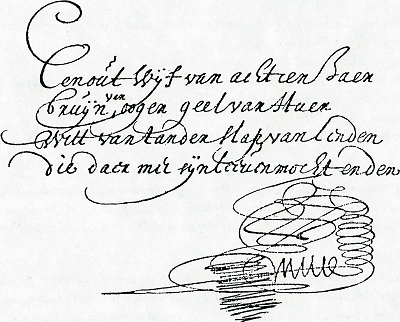 Een oût Wijf van achtien Jaer
bruijn van oogen geel van Haer
Witt van tanden slap van lenden
die daer met sijn leven mocht enden